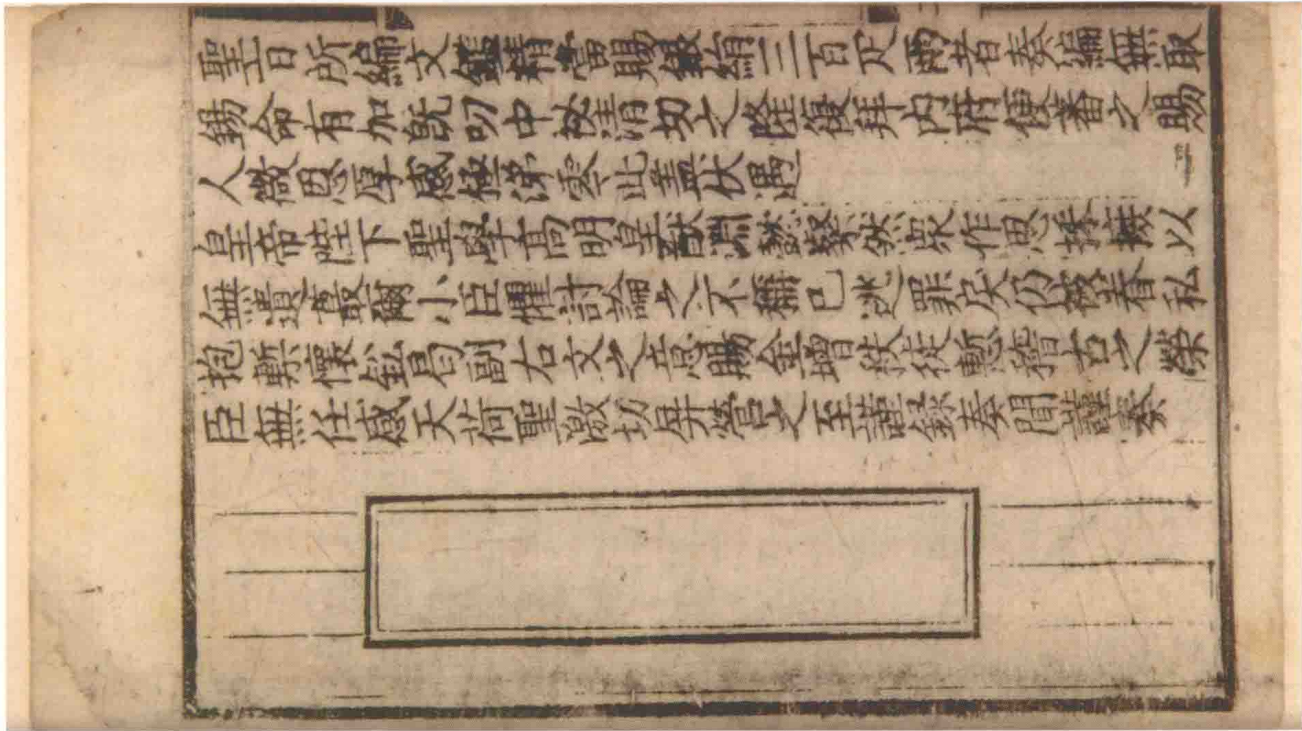 聖旨所編文鑑精當賜銀絹三百疋兩者奏編無取
錫命有加既叨中秘清切之隆復拜内府便蕃之賜
人微恩厚感極涕零此蓋伏遇
皇帝陛下聖學高明皇猷淵懿粲然衆作悉採摭以
無遺蕞爾小臣懼討論之不稱已逃罪戾仍被眷私
抱槧懷鉛曷副右文之意賜金增秩徒慙稽古之榮
臣無任感天荷聖激切屏營之至謹錄奏聞謹奏